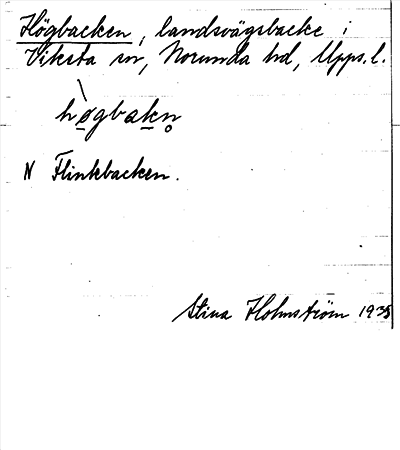 Högbacken, landsvägsbacke i
Viksta sn, Norunda hd, Upps. l.
hø̀gbakn̥
N Flinkbacken.
Stina Holmström 1935